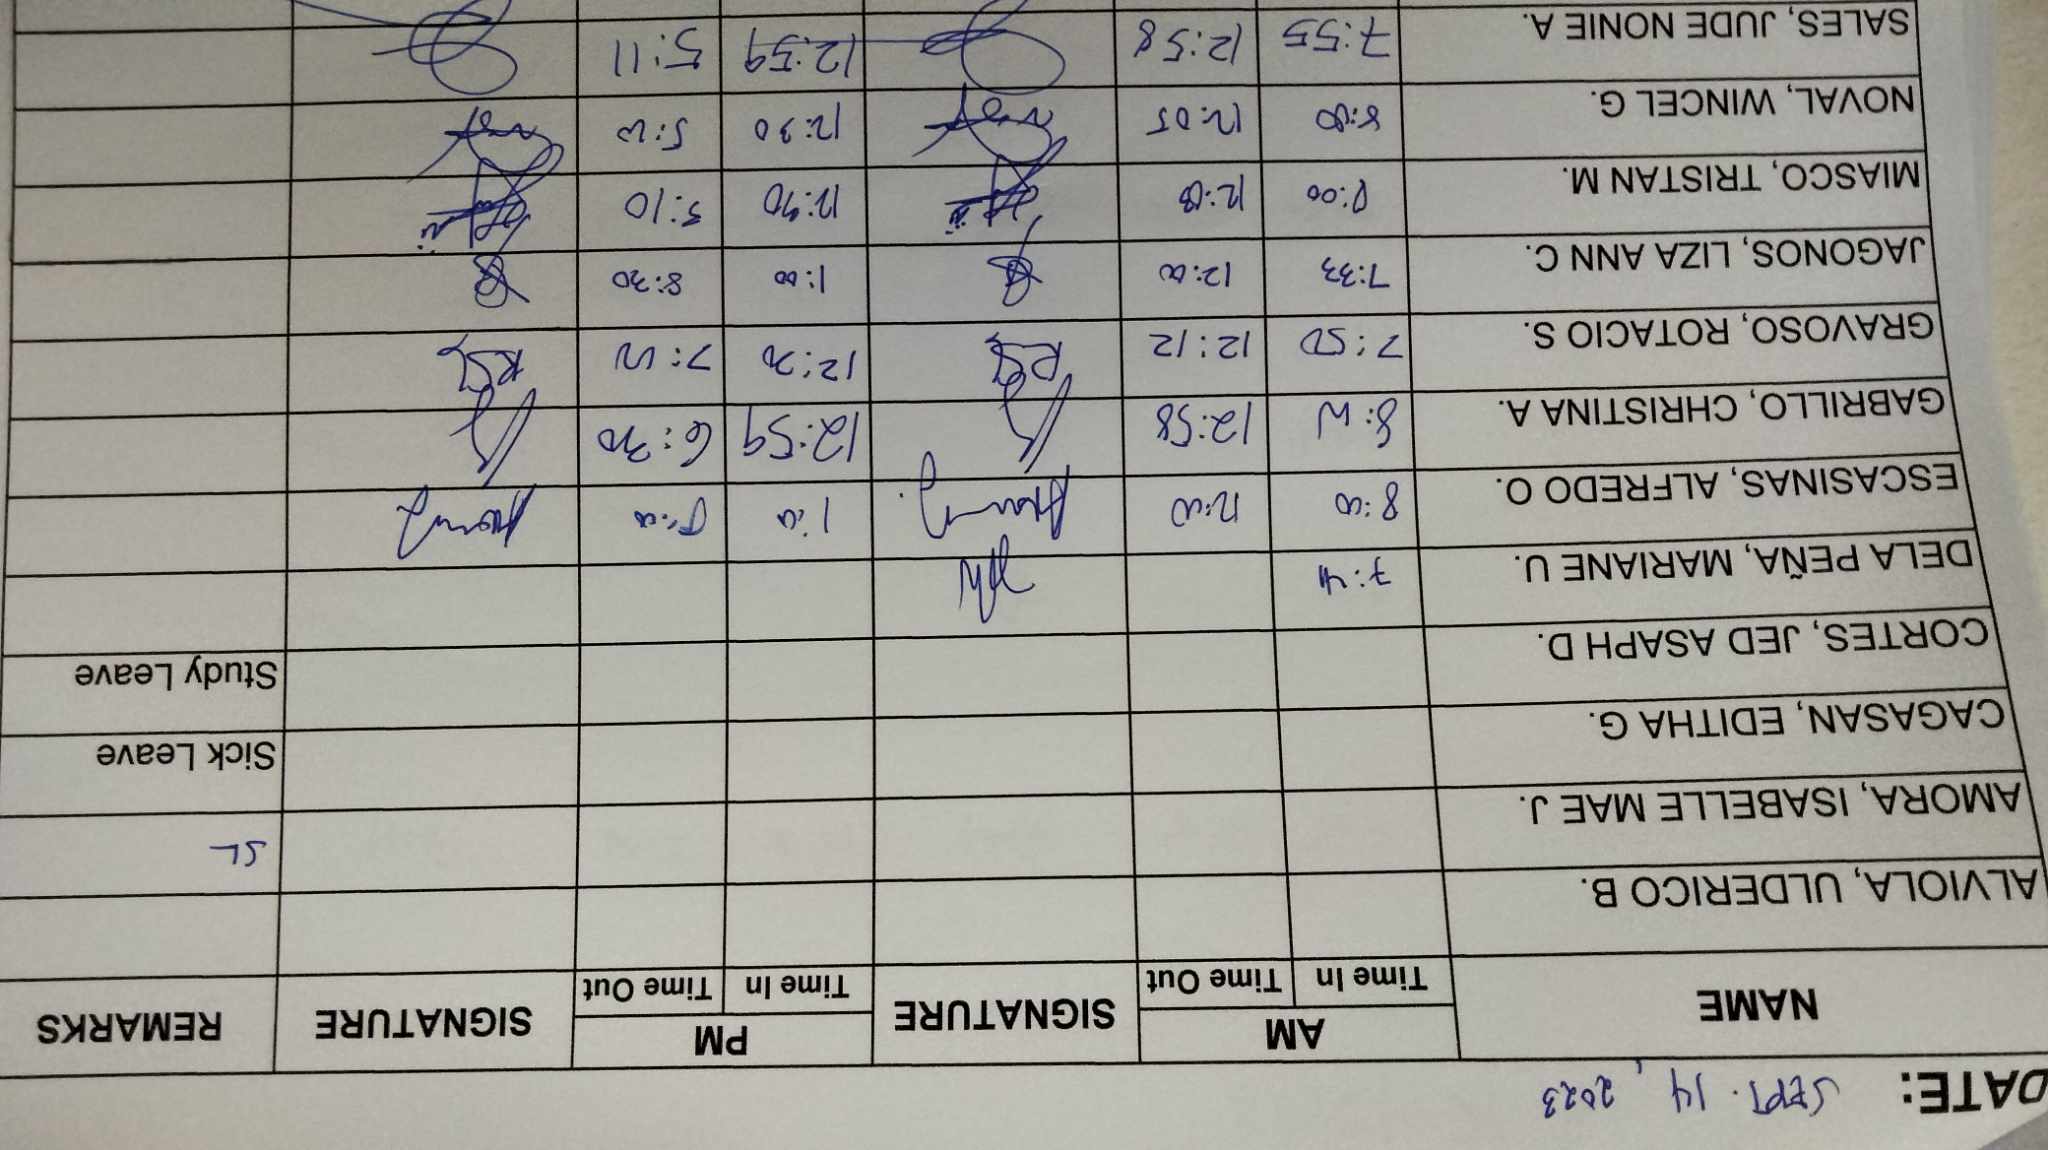 DATE: SEPT. 14, 2023
NAME AM SIGNATURE PM SIGNATURE REMARKS
Time In Time Out Time In Time Out
ALVIOLA, ULDERICO B.
AMORA, ISABELLE MAE J. SL
CAGASAN, EDITHA G. Sick Leave
CORTES, JED ASAPH D. Study Leave
DELA PEÑA, MARIANE U. 7:41
ESCASINAS, ALFREDO O. 8:00 12:00 1:00 5:00
GABRILLO, CHRISTINA A. 8:00 12:58 12:59 6:30
GRAVOSO, ROTACIO S. 7:50 12:12
JAGONOS, LIZA ANN C. 7:33 12:00 1:00 8:30
MIASCO, TRISTAN M. 8:00 5:10
NOVAL, WINCEL G. 8:00 12:05 12:30 5:00
SALES, JUDE NONIE A. 7:55 12:58 12:59 5:11